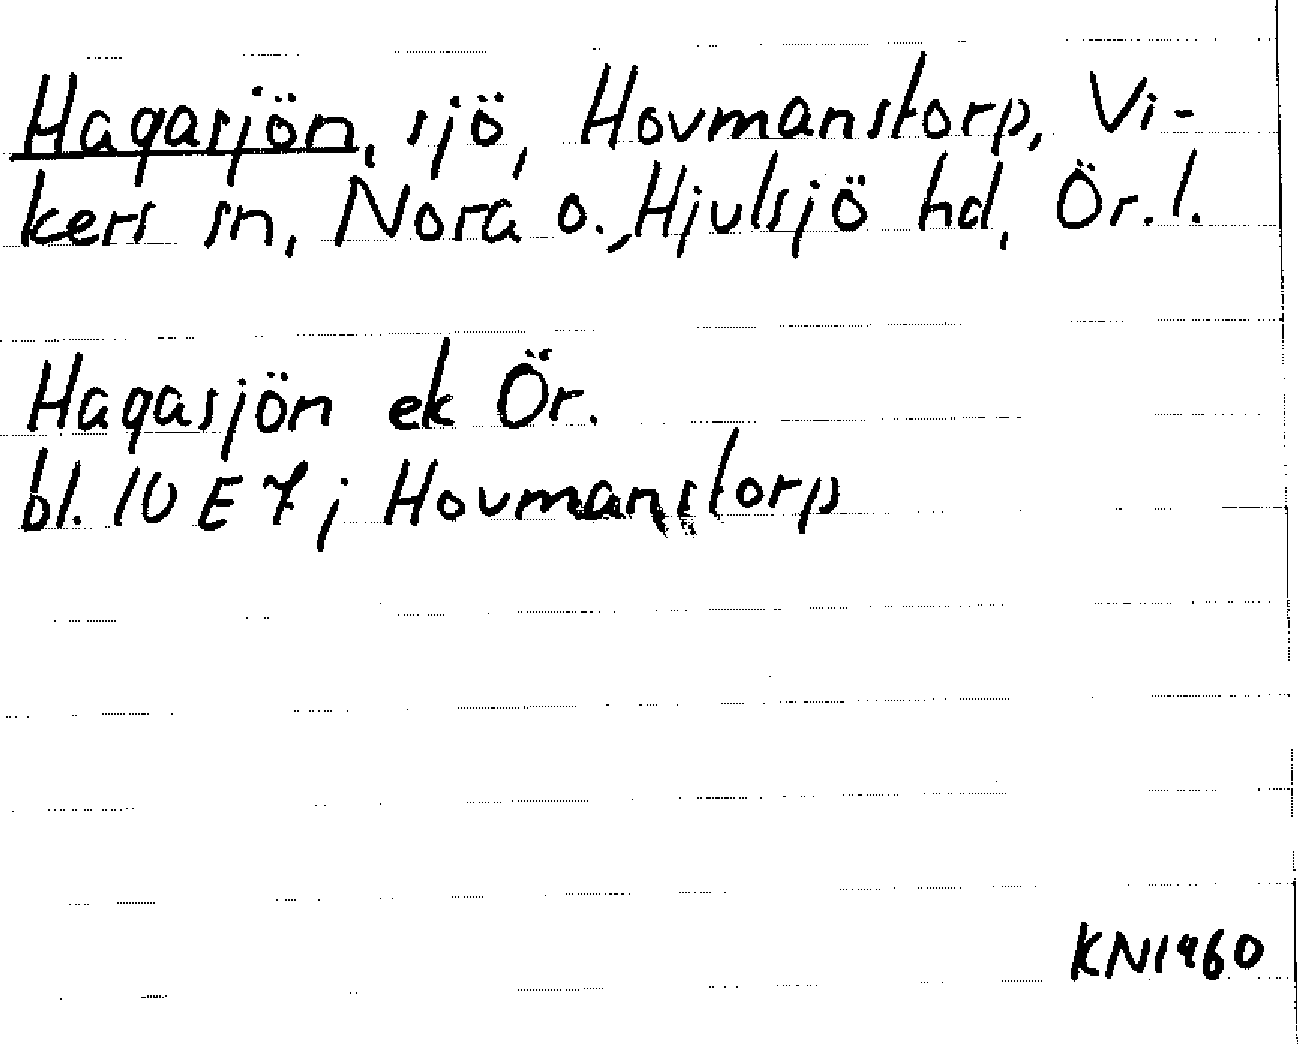 Hagasjön, sjö, Hovmanstorp, Vi-
kers sn, Nora o. Hjulsjö hd, Ör. l.
Hagasjön ek Ör.
bl. 10 E 7 j Hovmanstorp
KN1960